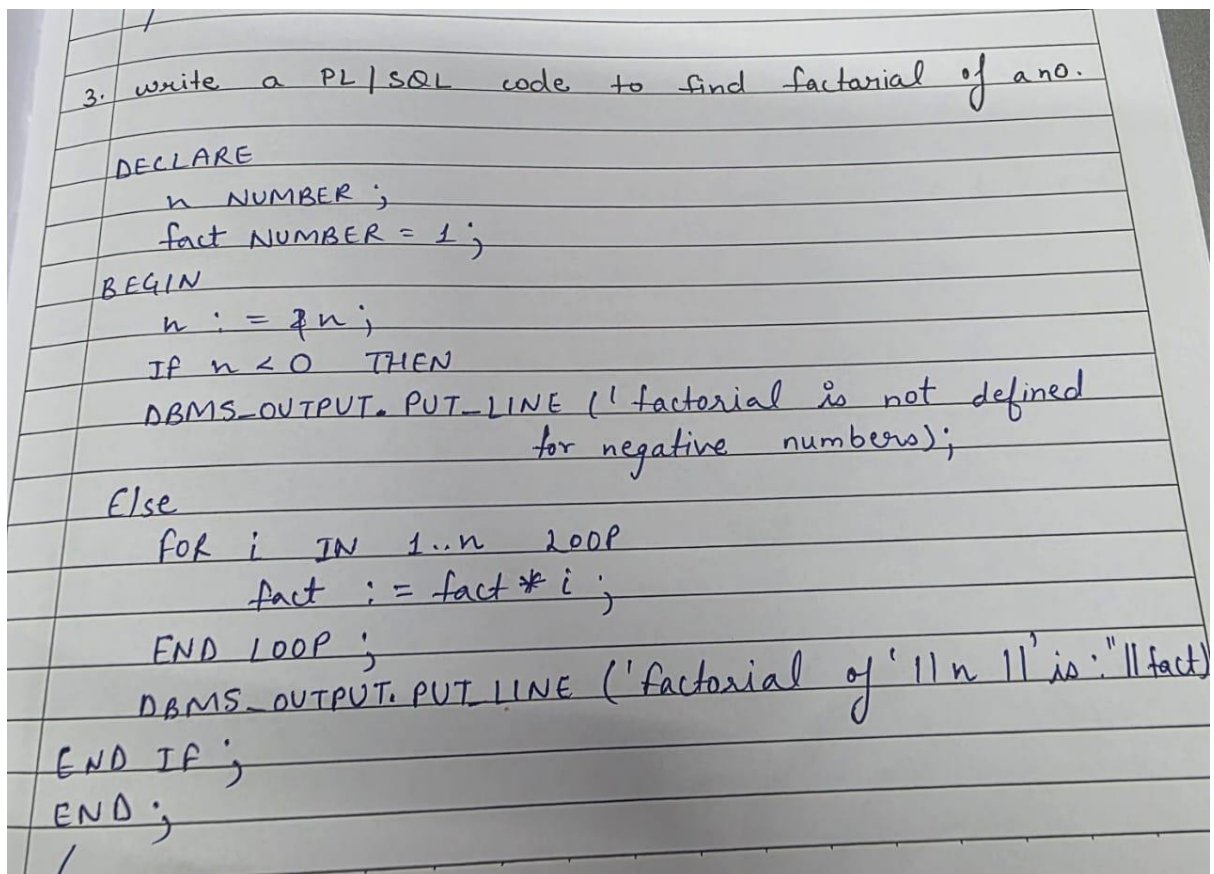 /
3. write a PL/SQL code to find factarial of a no.
DECLARE
n NUMBER ;
fact NUMBER = 1 ;
BEGIN
n : = &n ;
If n < 0 THEN
DBMS_OUTPUT. PUT_LINE (' factorial is not defined
for negative numbers);
Else
FOR i IN 1..n LOOP
fact : = fact * i ;
END LOOP ;
DBMS_OUTPUT. PUT_LINE ('factorial of ' || n ||' is :" || fact)
END IF ;
END ;
/